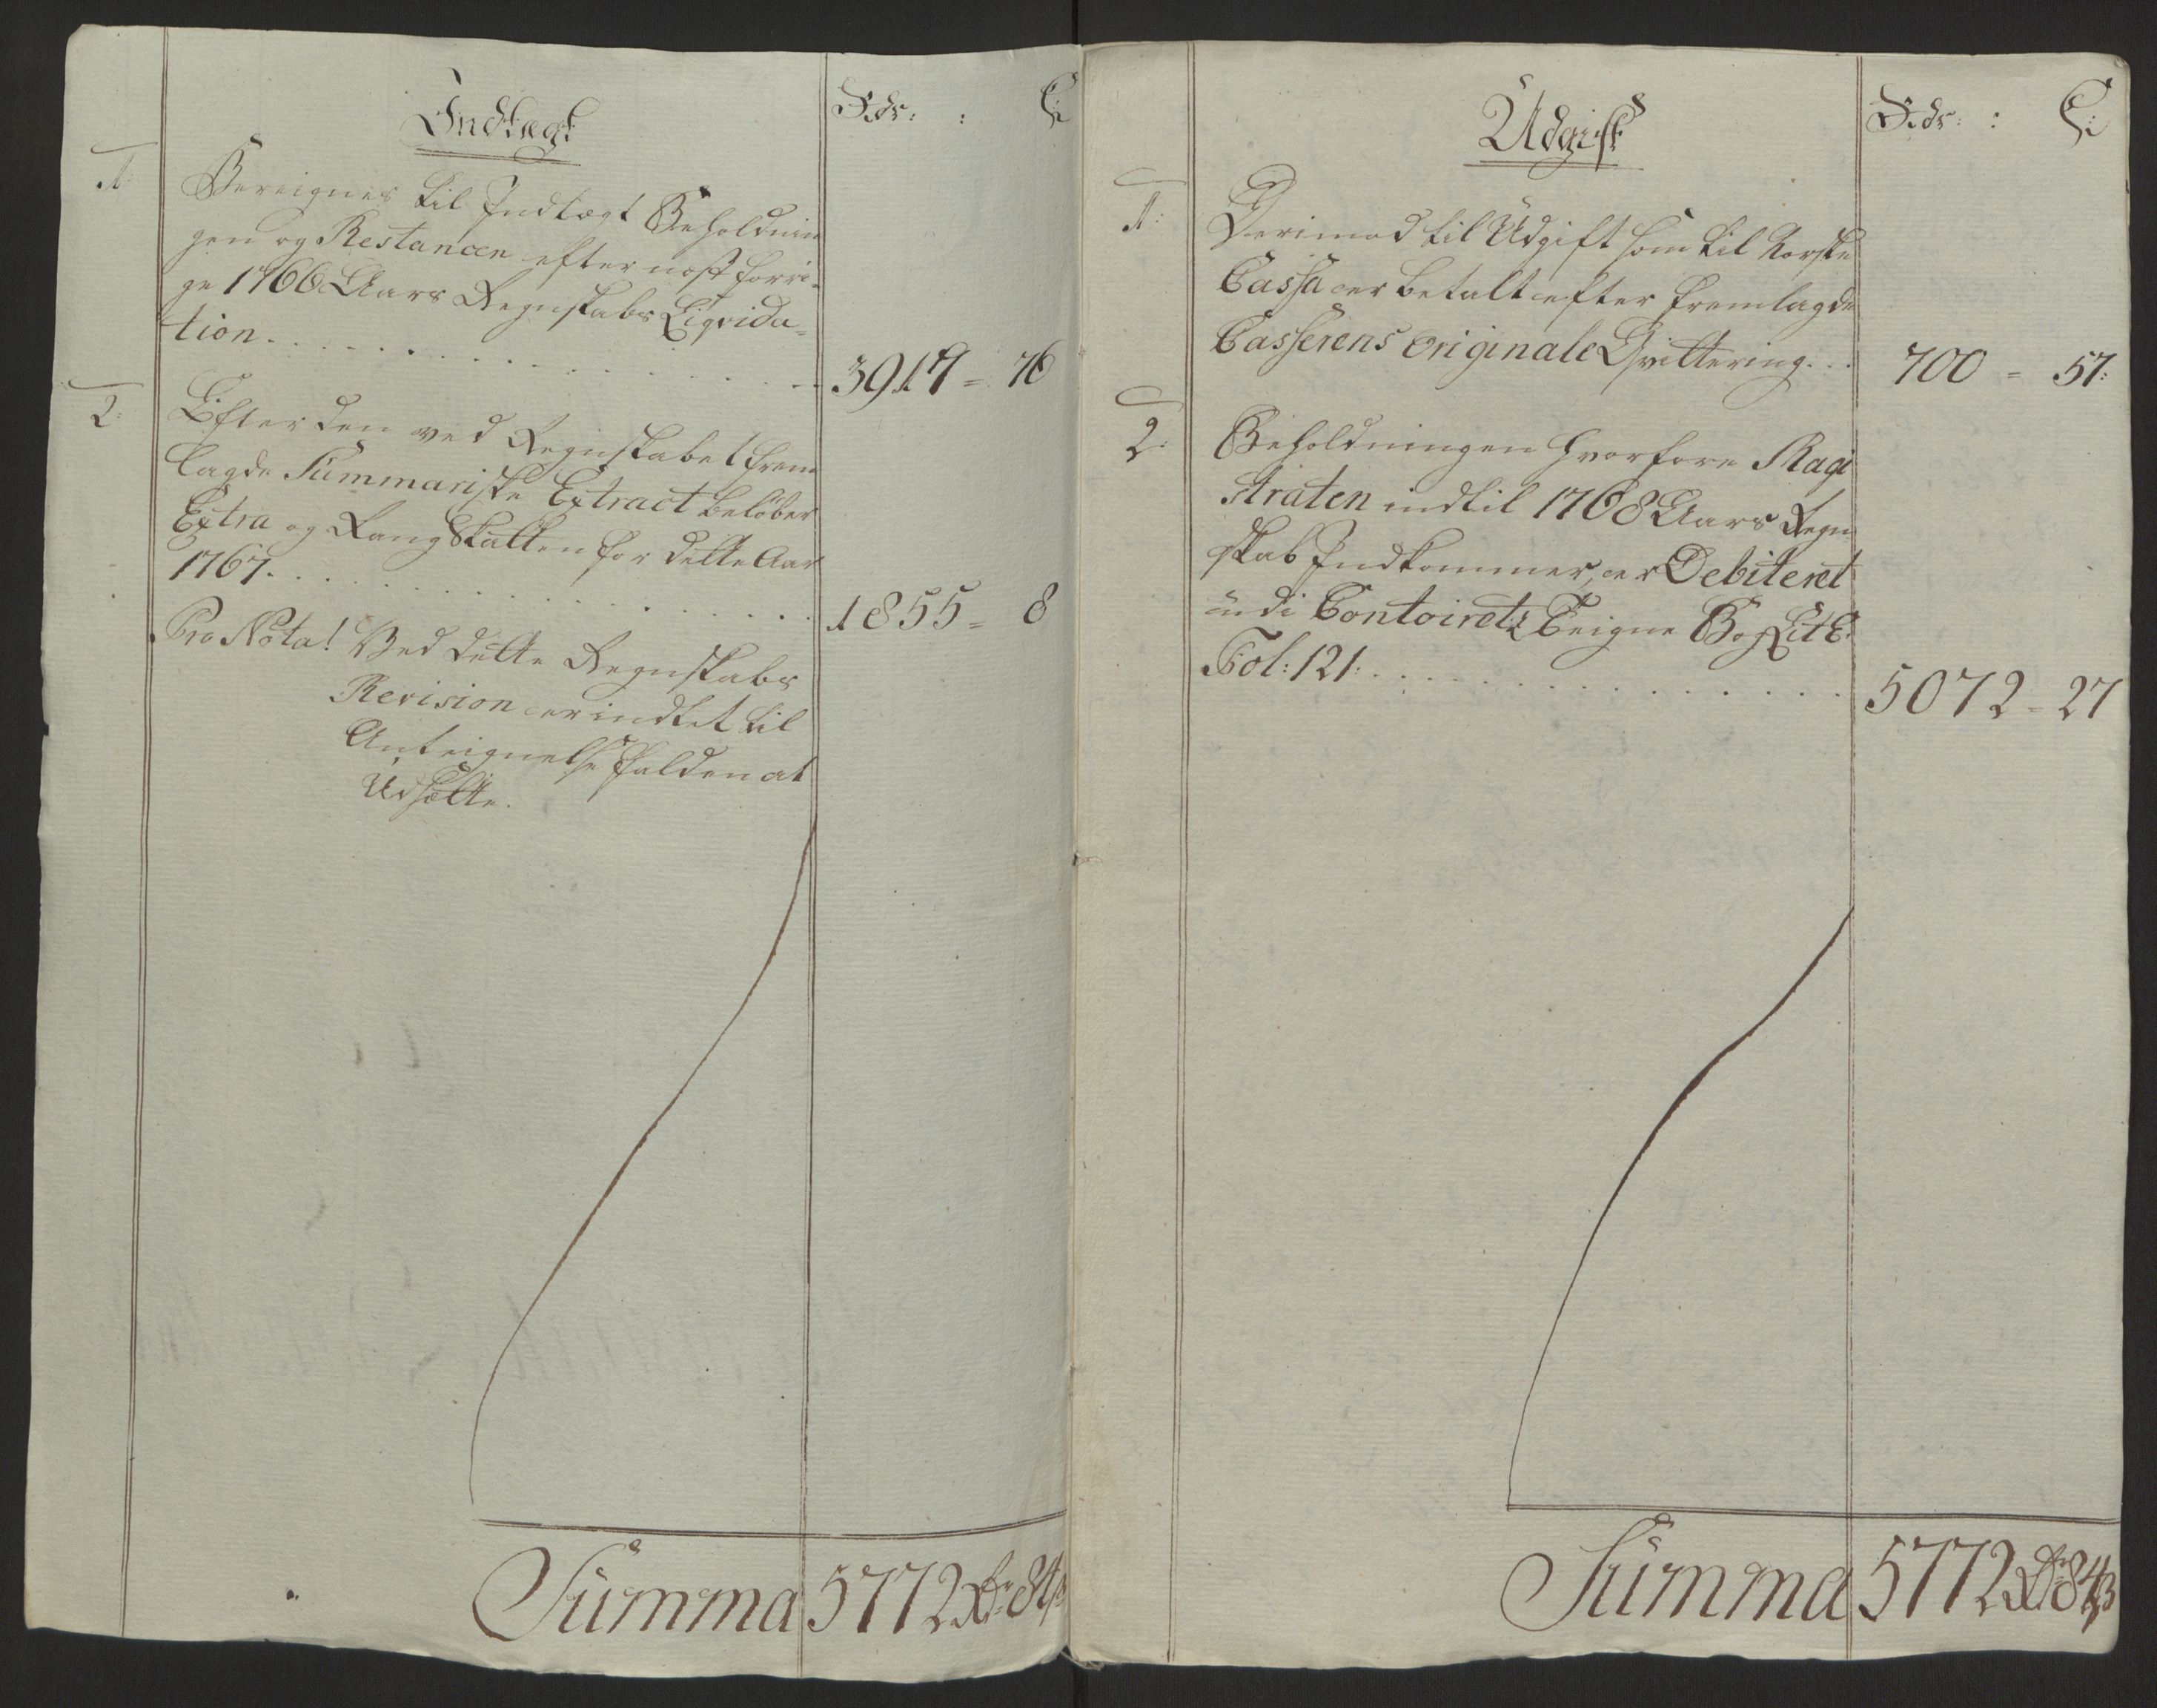 Indtægt
Rdr: : ß:
1: Bereignes til Indtægt Beholdnin
gen og Restancen efter nest forri-
ge 1766 Aars Regnskabs Liqvida-
tion. 3917 = 76
2: Efter den ved Regnskabet frem
lagde Summariske Extract beløber
Extra og Rang Skatten for dette Aar
1767. 1855 = 8
Pro Nota! Ved dette Regnskabs
Revision er indtet til
Anteignelse falden at
Udsætte.
Summa 5772 Rdr 84 ß
Udgift
Rdr: : ß:
1: Derimod til Udgift som til Norske
Cassa er betalt efter fremlagde
Casserens Originale Qvittering. 700 = 57:
2: Beholdningen hvorfore Magi
straten indtil 1768 Aars Regn
skab Indkommer, er Debiteret
udi Contoirets Teigne Bog Lit E.
Fol: 121: 5072 = 27
Summa 5772 Rdr 84 ß